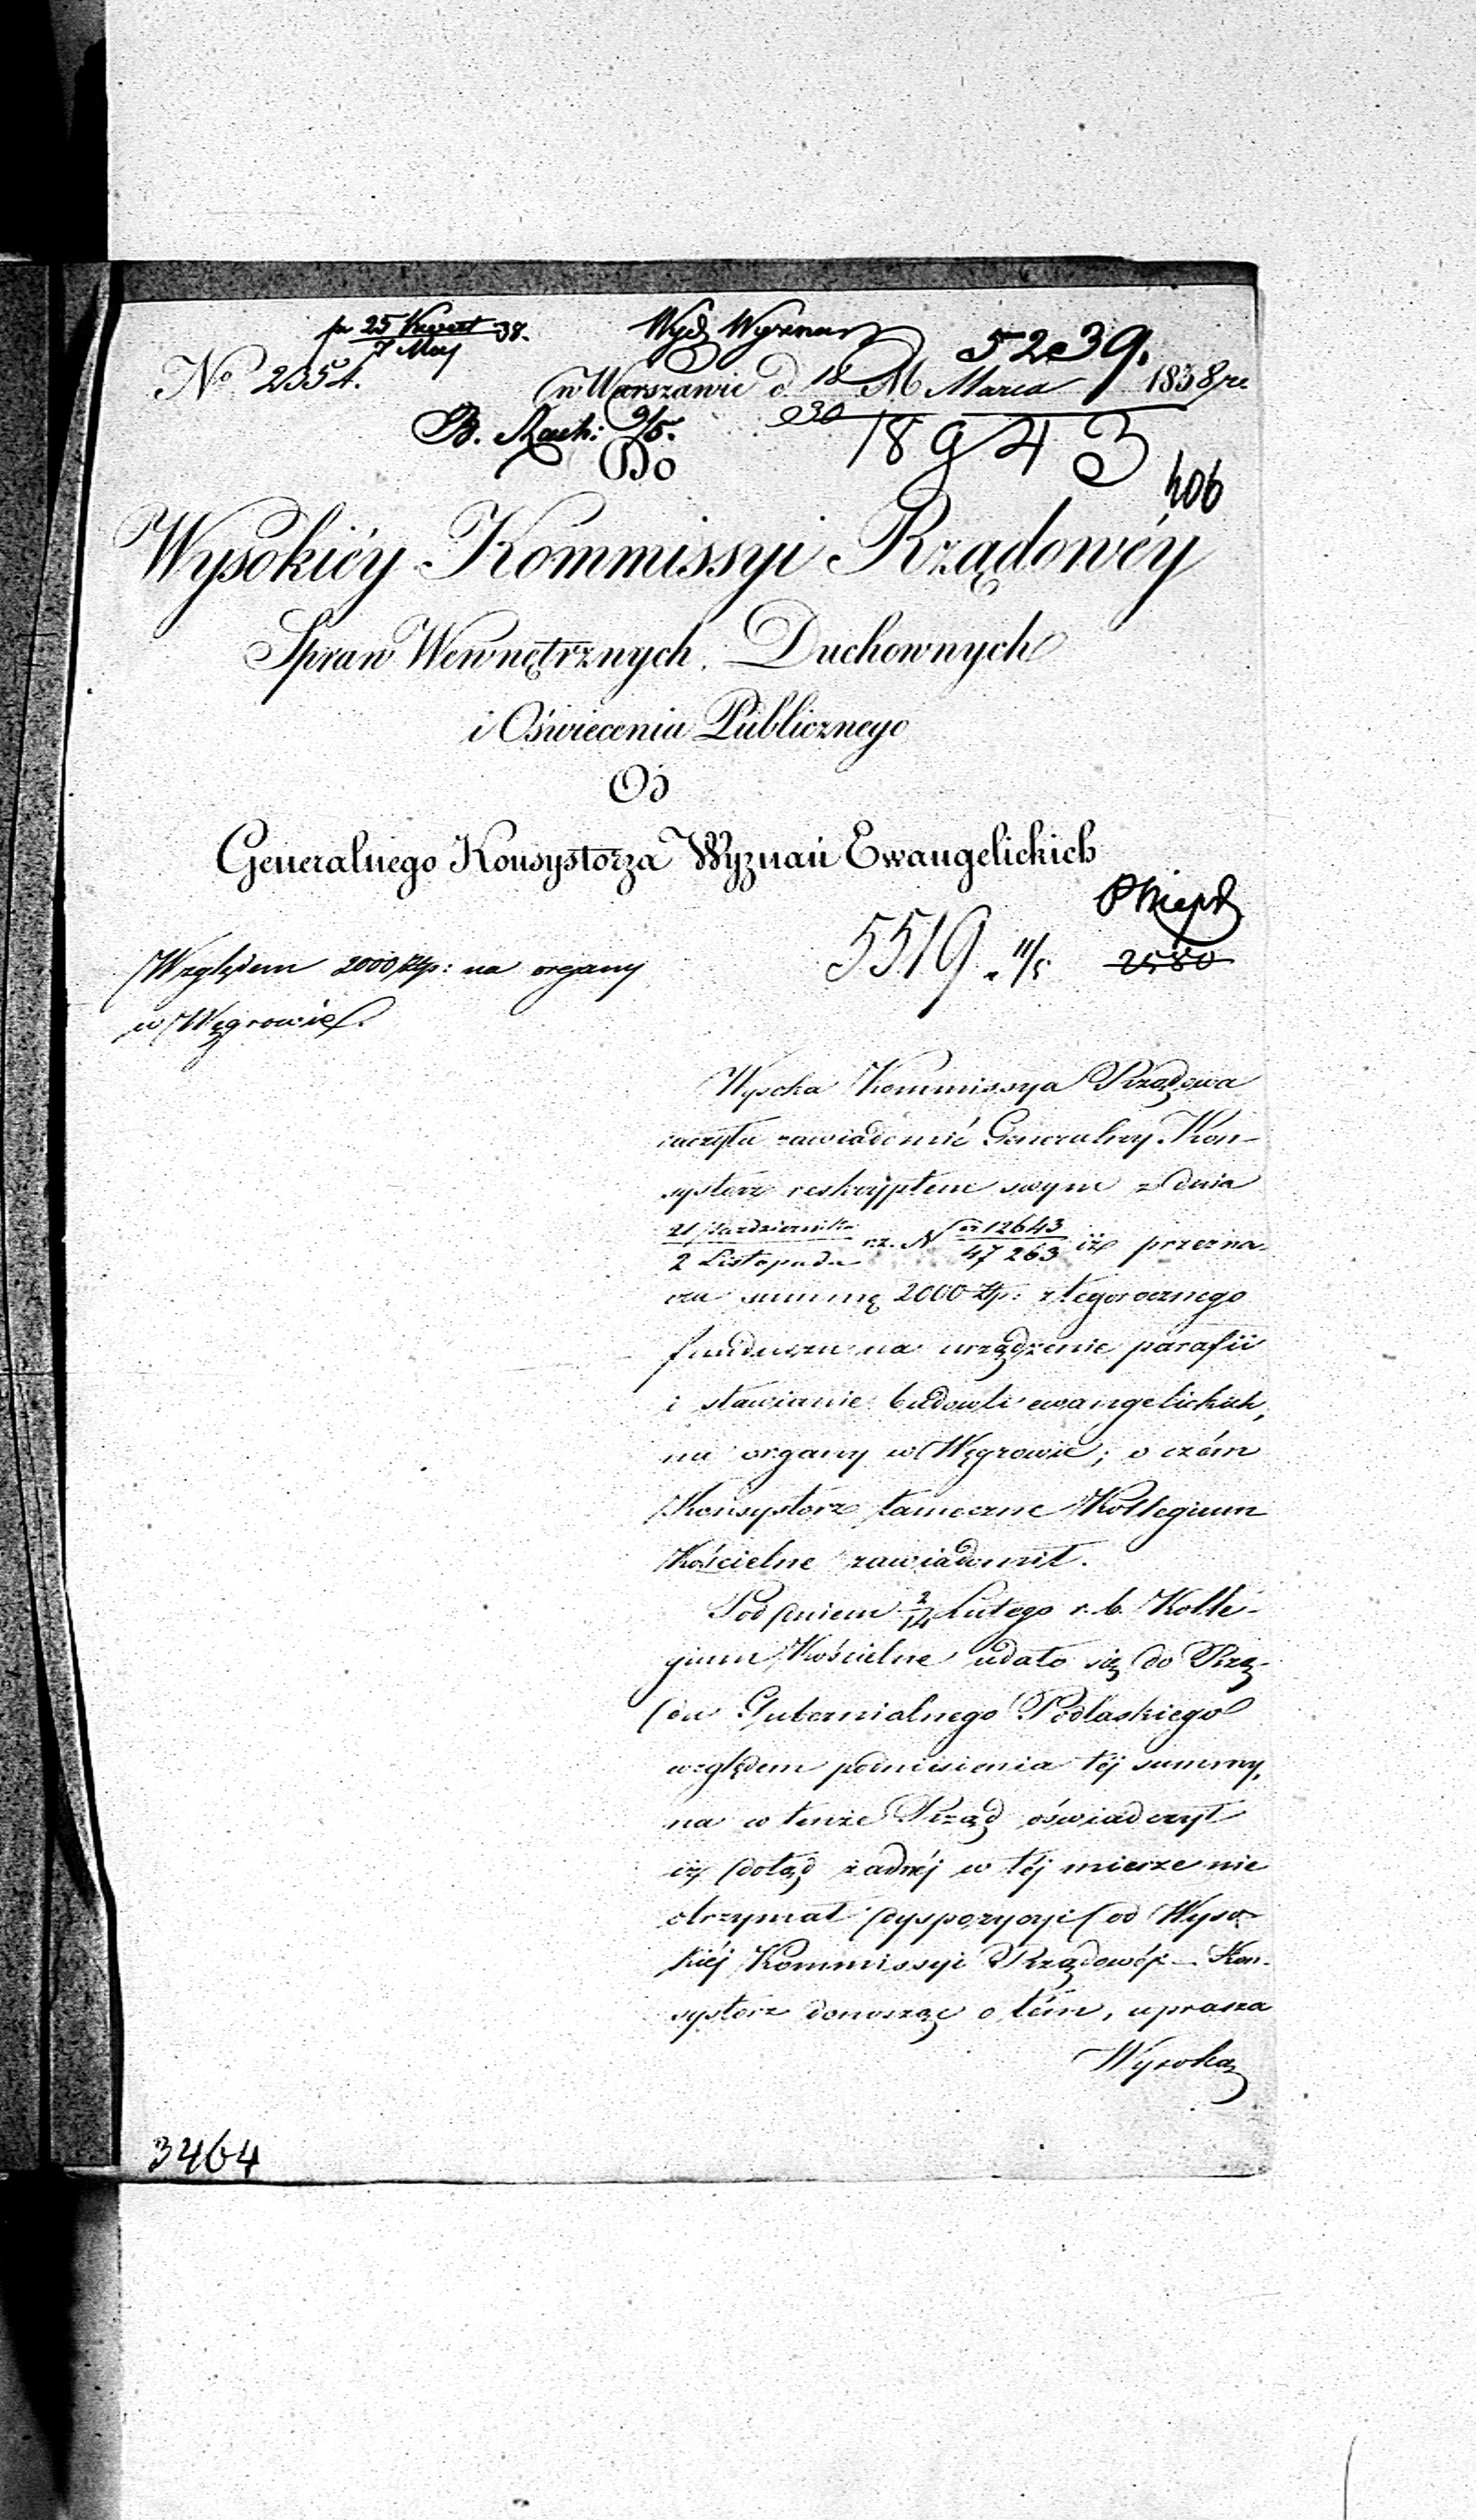 pr 25 Kwiet 38.
7 Maj
Wydz Wyznań
5239.
No 2354.
w Warszawie d. 18 M Marca 1838 r.
030
B. Rach: 9/5.
18943
Do
406
Wysokiéy Kommissyi Rządowéy
Spraw Wewnętrznych, Duchownych
i Oświecenia Publicznego
Od
Generalnego Konsystorza Wyznań Ewangelickich
5519. 11/5
2580
Względem 2000 złp: na organy
w Węgrowie.
Wysoka Kommissya Rządowa
raczyła zawiadomić Generalny Kon-
systorz reskryptem swym z dnia
21 Października
2 Listopada
r.z. N 12643
47263
iż przezna-
cza summę 2000 złp: z tegorocznego
funduszu na urządzenie parafii
i stawianie budowli ewangelickich,
na organy w Węgrowie; o czém
Konsystorz tameczne Kollegium
Kościelne zawiadomił.
Pod dniem 2/14 Lutego r. b. Kolle-
gium Kościelne udało się do Rzą-
du Gubernialnego Podlaskiego
względem podniesienia téj summy,
na co tenże Rząd oświadczył
iż dotąd żadnéj w téj mierze nie
otrzymał dyspozycyi od Wyso-
kiéj Kommissyi Rządowéj. – Kon-
systorz donosząc o tém, uprasza
Wysoką
3464